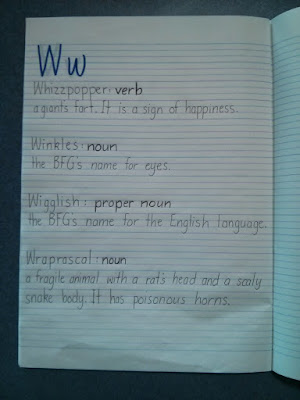 Ww
Whizzpopper: verb
a giant's fart. It is a sign of happiness.
Winkles: noun
the BFG's name for eyes.
Wigglish: proper noun
the BFG's name for the English language.
Wraprascal: noun
a fragile animal with a rat's head and a scaly
snake body. It has poisonous horns.